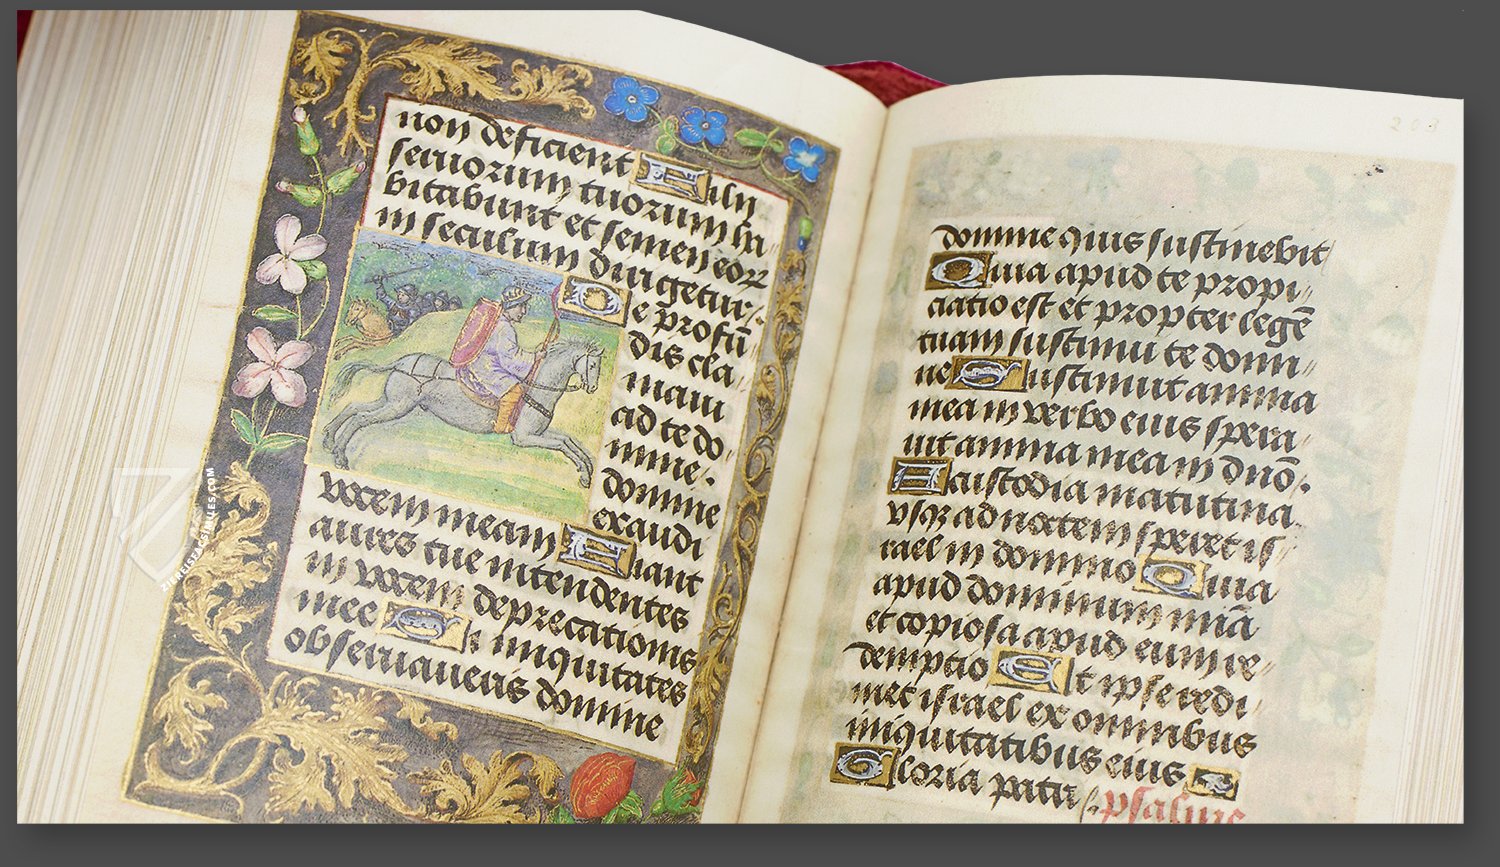 non deficient Filij
seruorum tuorum ha
bitabunt et semen eorz
in seculum dirigetur
De profū
dis cla
maui
ad te do
mine
domine
exaudi
vocem meam Fiant
aures tue intendentes
in vocem deprecationis
mee Si iniquitates
obseruaueris domine
ZIEREISFACSIMILES.COM
203
domine quis sustinebit
Quia apud te propi
ciatio est et propter legē
tuam sustinui te domi
ne Sustinuit anima
mea in verbo eius spera
uit anima mea in dnō
A custodia matutina
vsqz ad noctem speret is
rael in domino Quia
apud dominum miā
et copiosa apud eum re
demptio Et ipse redi
met israel ex omnibus
iniquitatibus eius
Gloria patri psalmus